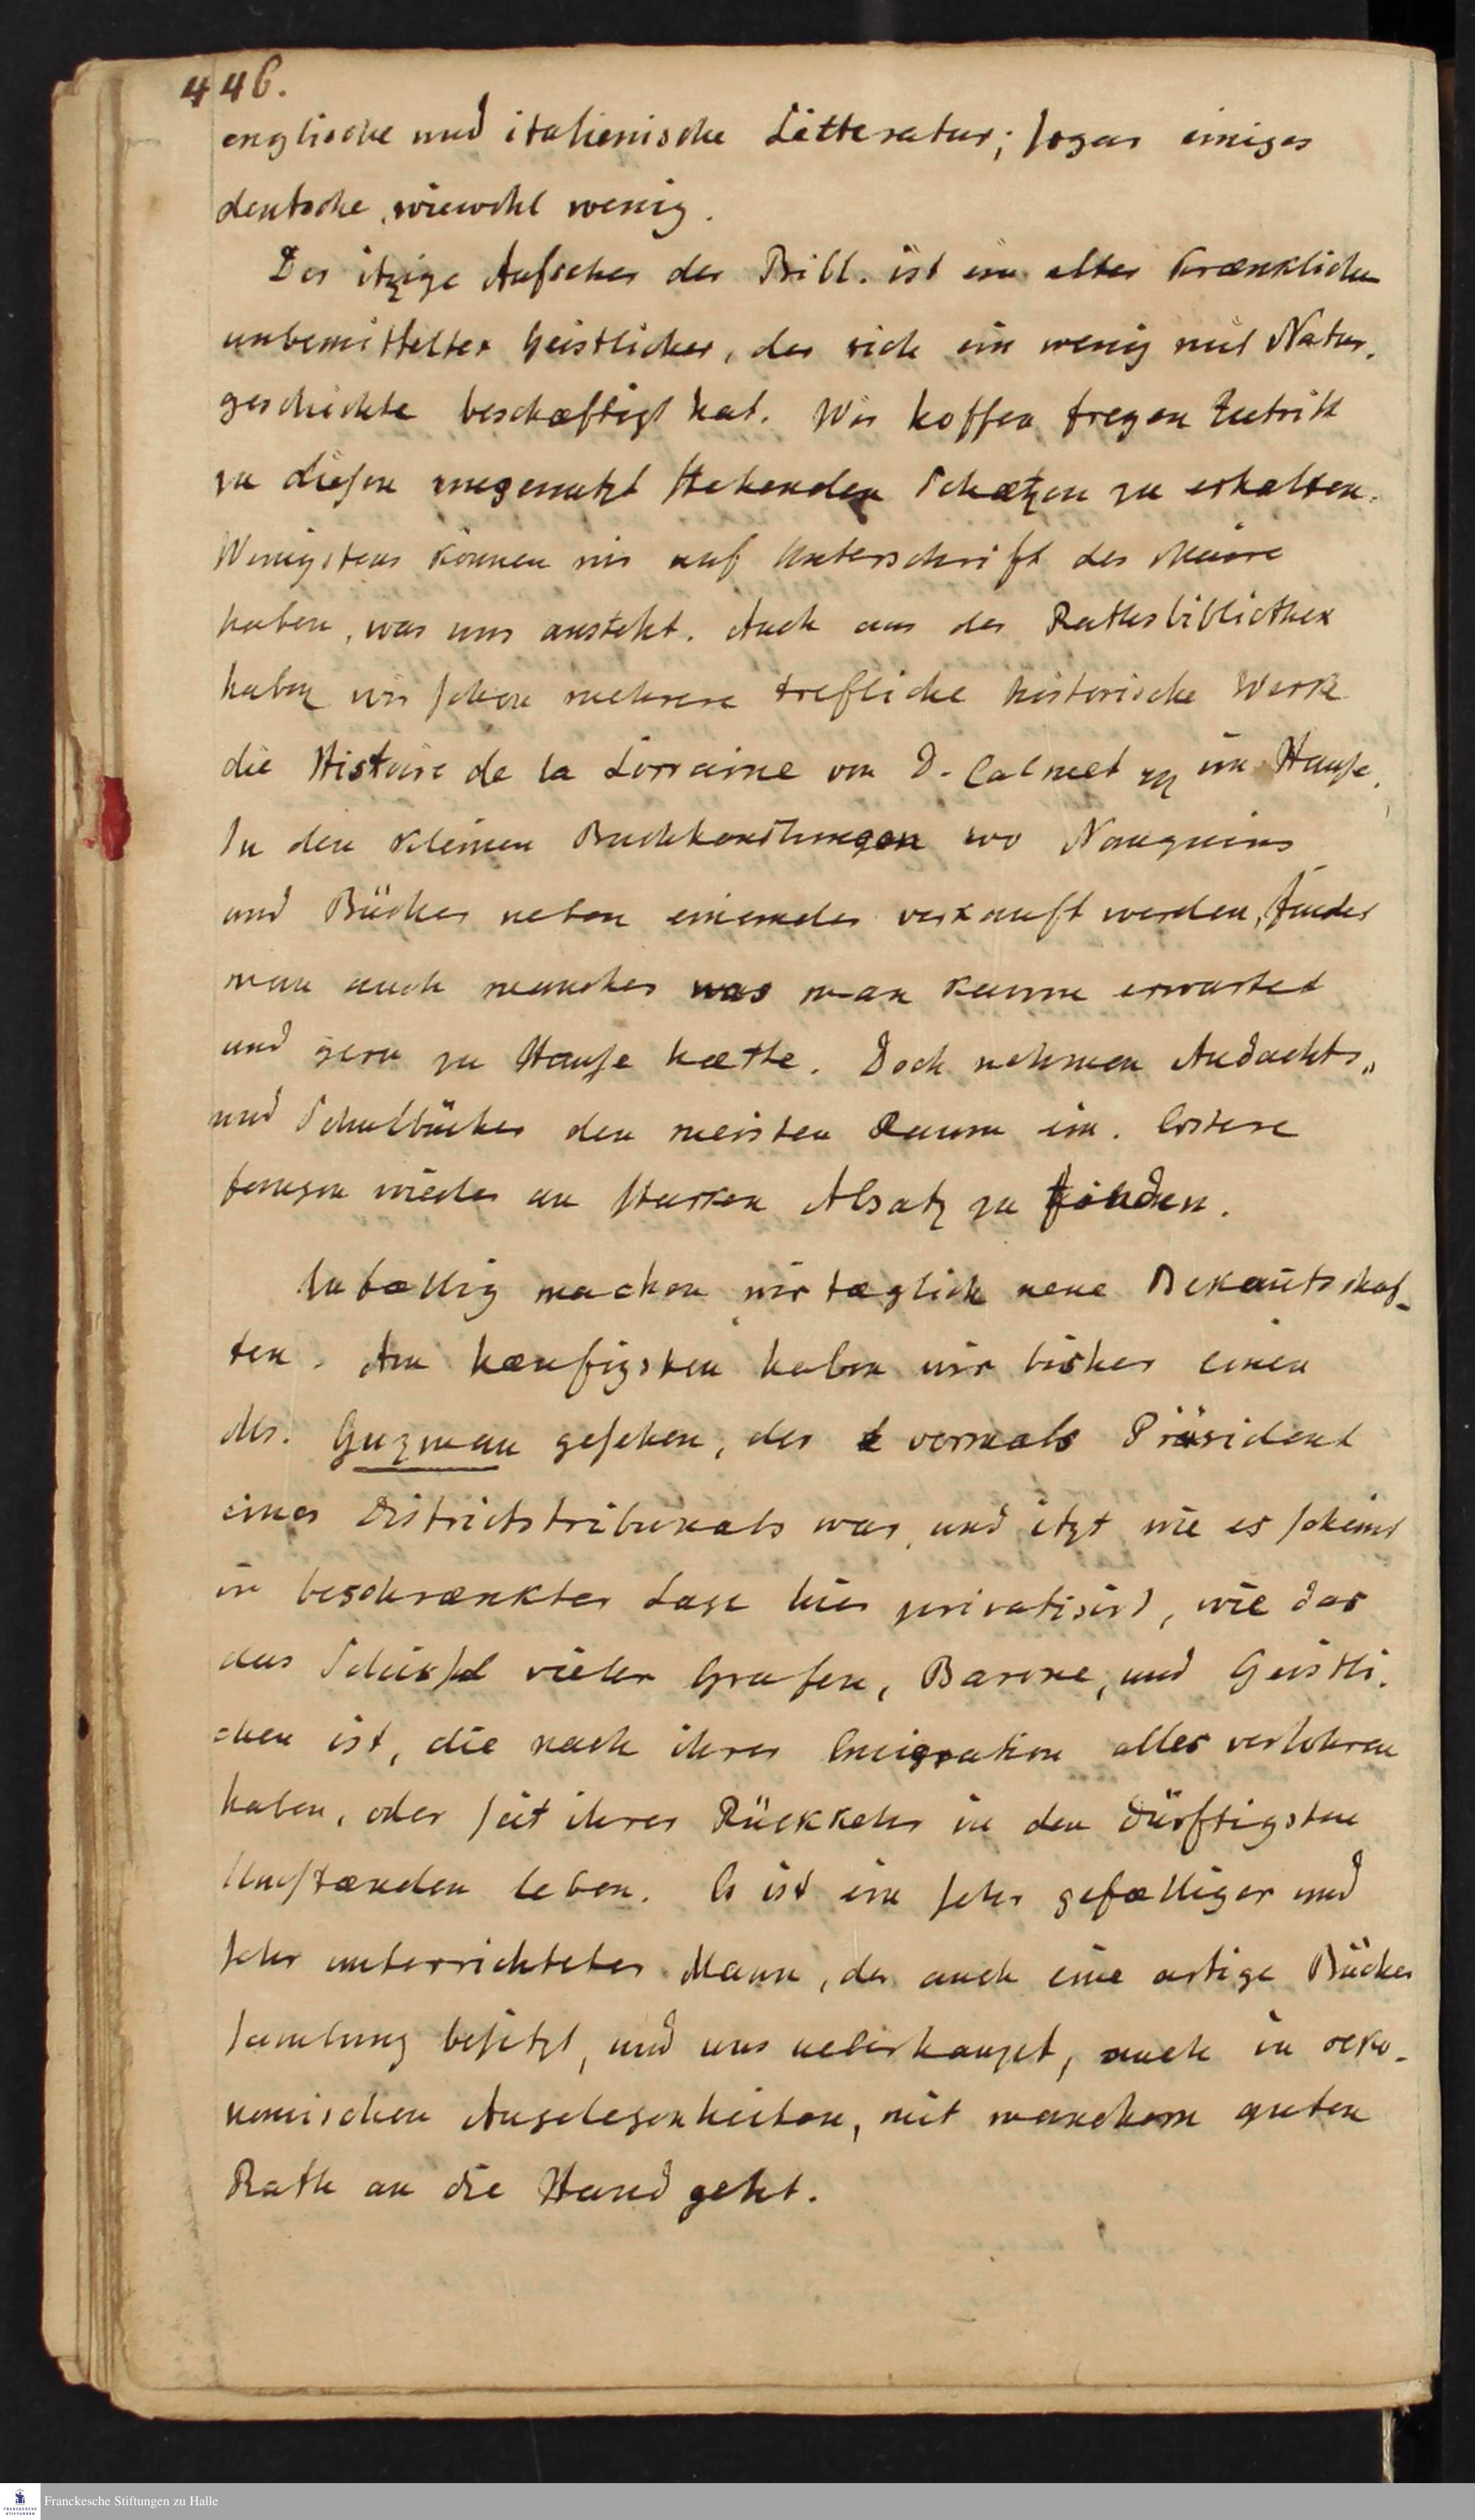 446.
englische und italienische Litteratur; sogar einiges
deutsche, wiewohl wenig.
Der itzige Aufseher der Bibl. ist ein alter krænklicher
unbemittelter Geistlicher, der sich ein wenig mit Natur-
geschichte beschæftigt hat. Wir hoffen freyen Zutritt
zu diesen ungenutzt stehenden Schætzen zu erhalten.
Wenigstens können wir auf Unterschrift des Maire
haben, was uns ansteht. Auch aus der Rathsbibliothek
haben wir schon mehrere trefliche historische Werke
die Histoire de la Lorraine von D. Calmet im Hause.
In den kleinen Buchhandlungen wo Nanquins
und Bücher neben einander verkauft werden, findet
man auch manches was man kaum erwartet
und gern zu Hause hætte. Doch nehmen Andachts„
und Schulbücher den meisten Raum ein. Erstere
fangen wieder an starken Absatz zu finden.
Zufællig machen wir tæglich neue Bekañtschaf-
ten. Am hæufigsten haben wir bisher einen
Mr. Guzman gesehen, der vormals Präsident
eines Districtstribunals war, und itzt wie es scheint
in beschrænkter Lage hier privatisirt, wie das
das Schicksal vieler Grafen, Barone, und Geistli-
chen ist, die nach ihrer Emigration alles verlohren
haben, oder seit ihrer Rückkehr in den dürftigsten
Umstænden leben. Er ist ein sehr gefælliger und
sehr unterrichteter Mann, der auch eine artige Bücher
samlung besitzt, und uns ueberhaupt, auch in oeko-
nomischen Angelegenheiten, mit manchem guten
Rath an die Hand geht.
Franckesche Stiftungen zu Halle